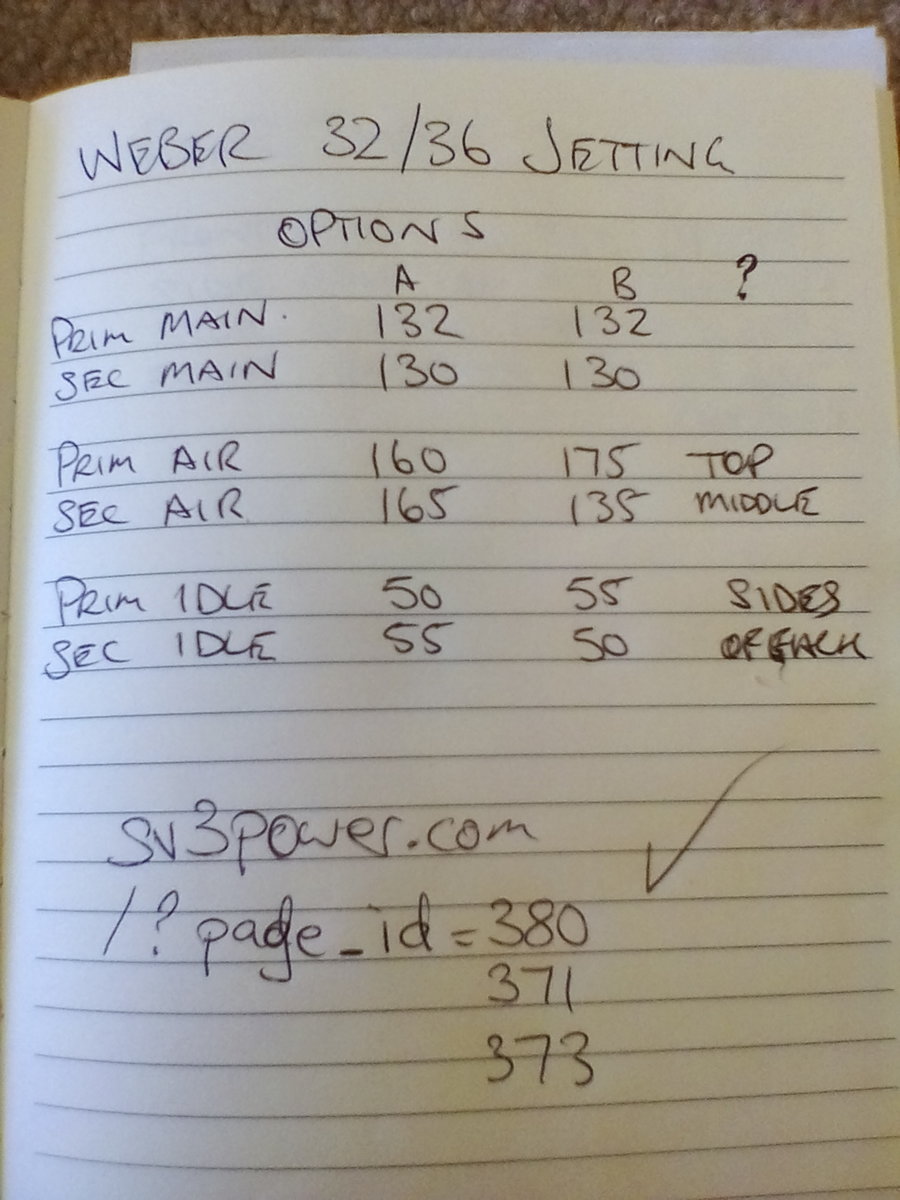 WEBER 32/36 JETTING
OPTIONS
A B ?
PRIM MAIN. 132 132
SEC MAIN 130 130
PRIM AIR 160 175 TOP
SEC AIR 165 135 MIDDLE
PRIM IDLE 50 55 SIDES
SEC IDLE 55 50
sv3power.com
/?page_id=380
371
373